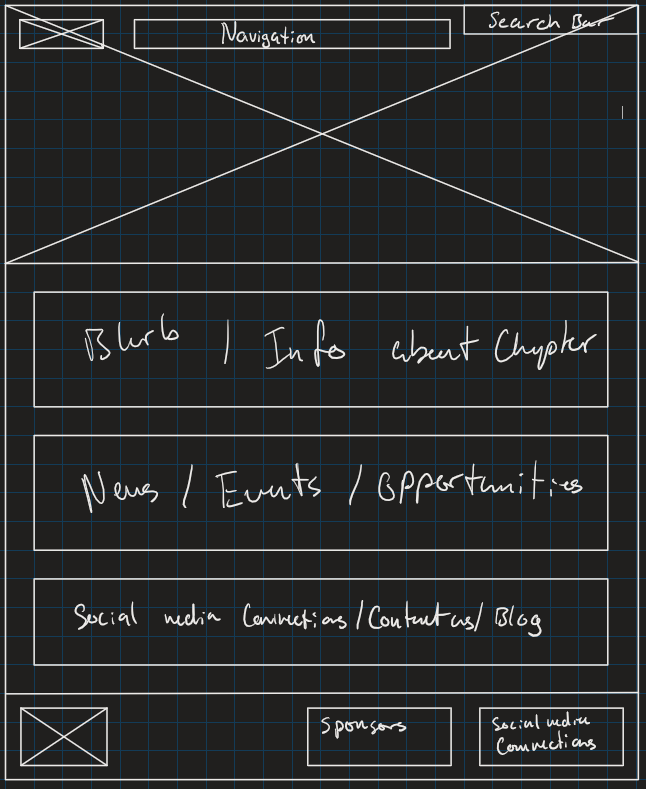 Navigation
Search Bar
Blurb / Info about Chapter
News / Events / Opportunities
Social media Connections / Contact us / Blog
Sponsors
Social media
Connections